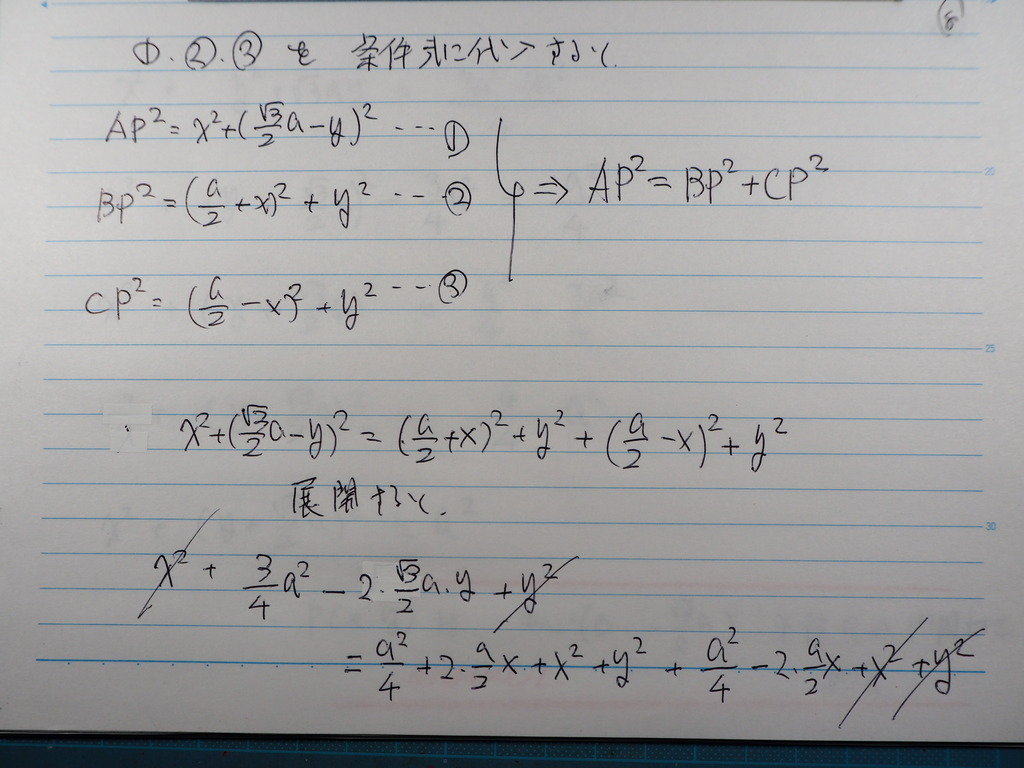 ⑧
①.②.③を 条件式に代入すると.
AP²=x²+(√3/2 a-y)² ---①
BP²=(a/2+x)²+y² ---② ⇒ AP²=BP²+CP²
CP²=(a/2-x)²+y² ---③
25
∴ x²+(√3/2 a-y)²=(a/2+x)²+y²+(a/2-x)²+y²
展開すると.
30
x²+3/4 a²-2・√3/2 a・y+y²
=a²/4+2・a/2 x+x²+y²+a²/4-2・a/2 x+x²+y²